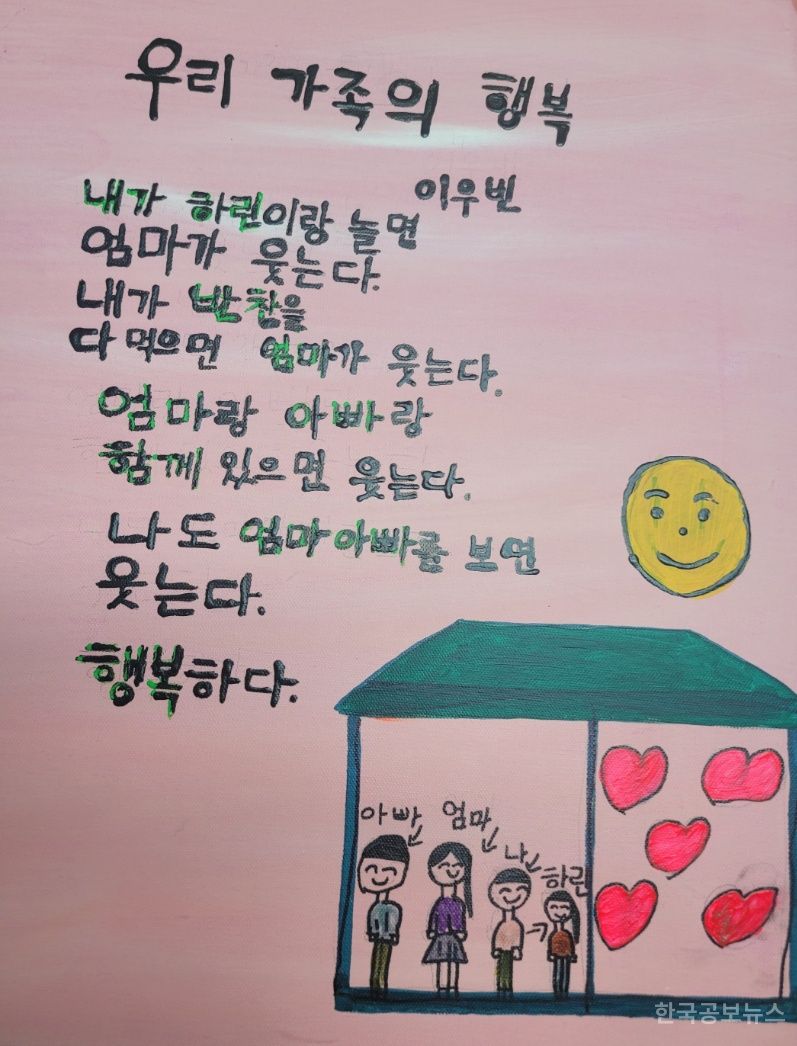 우리 가족의 행복
이우빈
내가 하린이랑 놀면
엄마가 웃는다.
내가 반찬을
다 먹으면 엄마가 웃는다.
엄마랑 아빠랑
함께 있으면 웃는다.
나도 엄마아빠를 보면
웃는다.
행복하다.
아빠
엄마
나
하린
한국공보뉴스